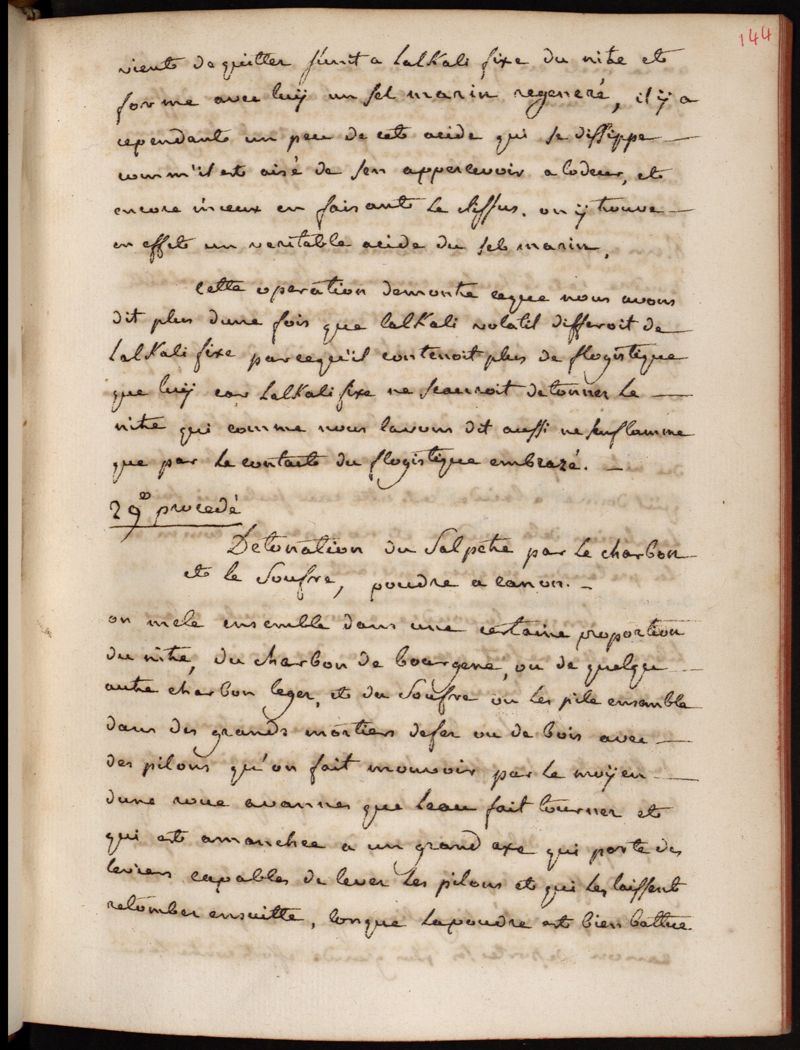 144
vient de quitter s'unit a lalkali fixe du nitre et
forme avec luÿ un sel marin regeneré, il ÿ a
cependant un peu de cet acide qui se dissippe
comm'il est aisé de sen appercevoir a lodeur, et
encore mieux en faisant le clissus. on ÿ trouve
en effet un veritable acide du sel marin.
cette operation demontre ceque nous avons
dit plus dune fois que lalkali volatil differoit de
lalkali fixe parcequ'il contenoit plus de flogistique
que luÿ car lalkali fixe ne scauroit detonner le
nitre qui comme nous lavons dit aussi ne senflamme
que par le contact du flogistique embrazé.
29e procedé
Detonation du Salpetre par le charbon
et le Soufre, poudre a canon.
on mele ensemble dans une certaine proportion
du nitre, du charbon de bourgene, ou de quelqu
autre charbon leger, et du Soufre on les pile ensemble
dans des grands mortiers defer ou de bois avec
des pilons qu'on fait mouvoir par le moÿen
dune roue a vannes que leau fait tourner et
qui est amanchee a un grand axe qui porte des
leviers capables de lever les pilons et qui les laissent
retomber ensuitte, lorsque lapoudre est bien battue